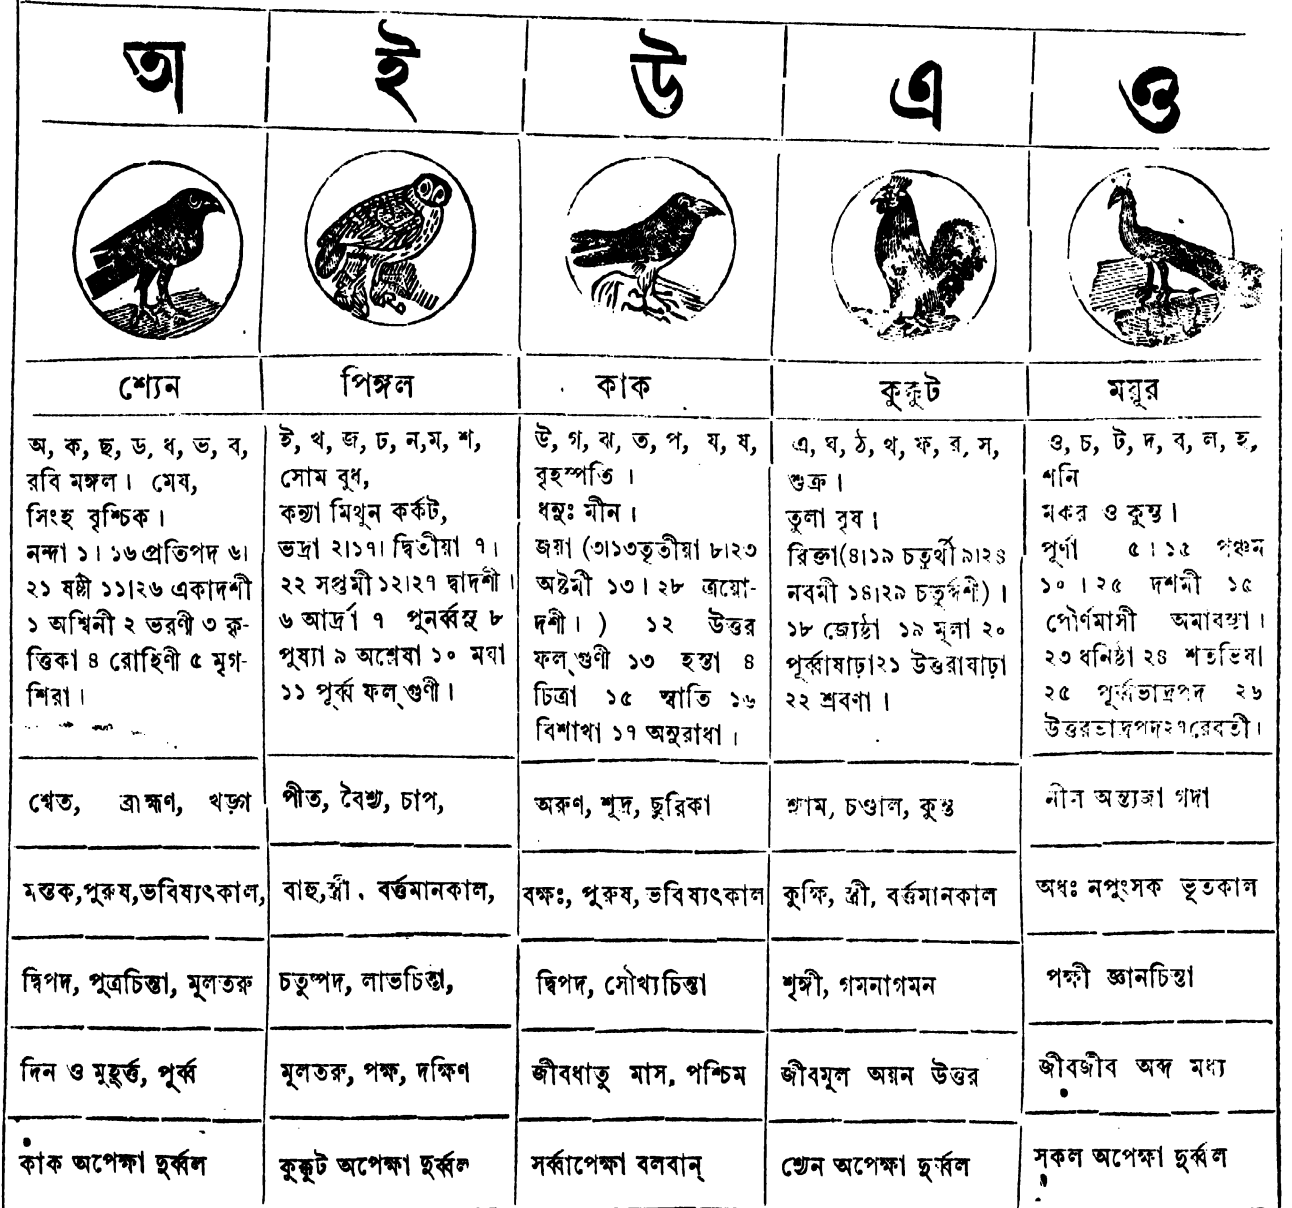 অ ই উ এ ও
শ্যেন পিঙ্গল কাক কুক্কুট ময়ূর
অ, ক, ছ, ড, ধ, ভ, ব,
রবি মঙ্গল। মেষ,
সিংহ বৃশ্চিক।
নন্দা ১। ১৬ প্রতিপদ ৬।
২১ ষষ্ঠী ১১।২৬ একাদশী
১ অশ্বিনী ২ ভরণী ৩ কৃ-
ত্তিকা ৪ রোহিণী ৫ মৃগ-
শিরা।
ই, খ, জ, ঢ, ন,ম, শ,
সোম বুধ,
কন্যা মিথুন কর্কট,
ভদ্রা ২।১৭। দ্বিতীয়া ৭।
২২ সপ্তমী ১২।২৭ দ্বাদশী।
৬ আর্দ্রা ৭ পুনর্ব্বসু ৮
পুষ্যা ৯ অশ্লেষা ১০ মঘা
১১ পূর্ব্ব ফল্গুণী।
উ, গ, ঝ, ত, প, য, ষ,
বৃহস্পতি।
ধনুঃ মীন।
জয়া (৩।১৩তৃতীয়া ৮।২৩
অষ্টমী ১৩।২৮ ত্রয়ো-
দশী।) ১২ উত্তর
ফল্গুণী ১৩ হস্তা ৪
চিত্রা ১৫ স্বাতি ১৬
বিশাখা ১৭ অনুরাধা।
এ, ঘ, ঠ, থ, ফ, র, স,
শুক্র।
তুলা বৃষ।
রিক্তা(৪।১৯ চতুর্থী ৯।২৪
নবমী ১৪।২৯ চতুর্দ্দশী)।
১৮ জ্যেষ্ঠা ১৯ মূলা ২০
পূর্ব্বাষাঢ়া২১ উত্তরাষাঢ়া
২২ শ্রবণা।
ও, চ, ট, দ, ব, ল, হ,
শনি
মকর ও কুম্ভ।
পূর্ণা ৫। ১৫ পঞ্চম
১০। ২৫ দশমী ১৫
পৌর্ণমাসী অমাবস্যা।
২৩ ধনিষ্ঠা ২৪ শতভিষা
২৫ পূর্ব্বভাদ্রপদ ২৬
উত্তরভাদ্রপদ২৭রেবতী।
শ্বেত, ব্রাহ্মণ, খড়্গ পীত, বৈশ্য, চাপ, অরুণ, শূদ্র, ছুরিকা শ্যাম, চণ্ডাল, কুন্ত নীল অন্ত্যজা গদা
মস্তক,পুরুষ,ভবিষ্যৎকাল, বাহু,স্ত্রী, বর্ত্তমানকাল, বক্ষঃ, পুরুষ, ভবিষ্যৎকাল কুক্ষি, স্ত্রী, বর্ত্তমানকাল অধঃ নপুংসক ভূতকাল
দ্বিপদ, পুত্রচিন্তা, মূলতরু চতুষ্পদ, লাভচিন্তা, দ্বিপদ, সৌখ্যচিন্তা শৃঙ্গী, গমনাগমন পক্ষী জ্ঞানচিন্তা
দিন ও মুহূর্ত্ত, পূর্ব্ব মূলতরু, পক্ষ, দক্ষিণ জীবধাতু মাস, পশ্চিম জীবমূল অয়ন উত্তর জীবজীব অব্দ মধ্য
কাক অপেক্ষা দুর্ব্বল কুক্কুট অপেক্ষা দুর্ব্বল সর্ব্বাপেক্ষা বলবান্ শ্যেন অপেক্ষা দুর্ব্বল সকল অপেক্ষা দুর্ব্বল